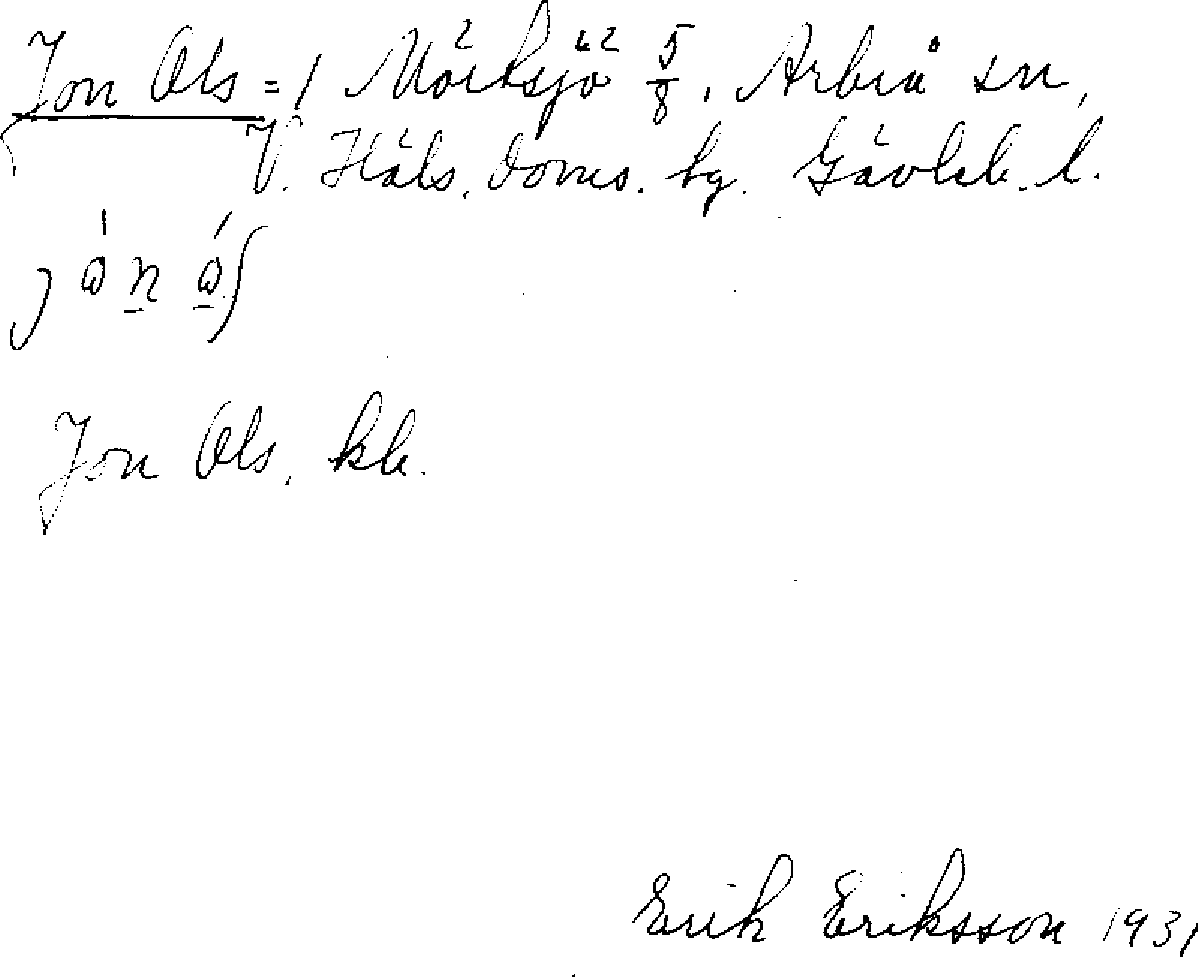 Jon Ols = / Mörksjö 5/8, Arbrå sn,
V. Häls. doms. hg. Gävleb. l.
Jon Ols, kb.
Erik Eriksson 1931